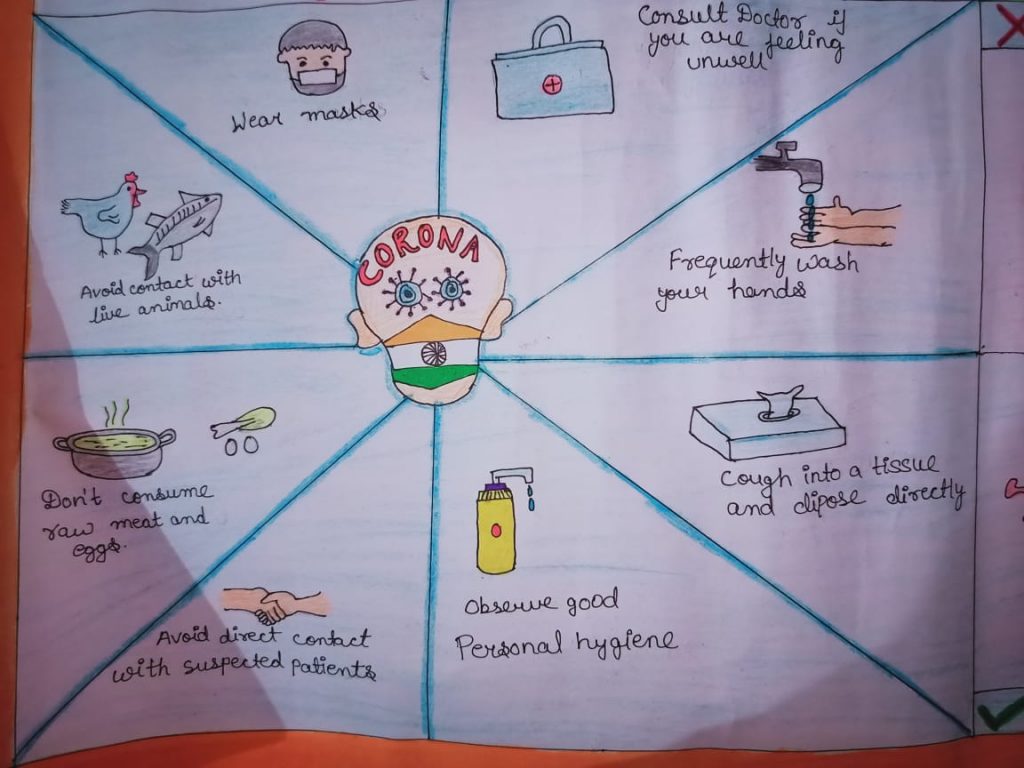 Wear masks
Consult Doctor if
you are feeling
unwell
Frequently wash
your hands
Cough into a tissue
and dipose directly
Observe good
Personal hygiene
Avoid direct contact
with suspected patients
Don't consume
raw meat and
eggs.
Avoid contact with
live animals.
CORONA